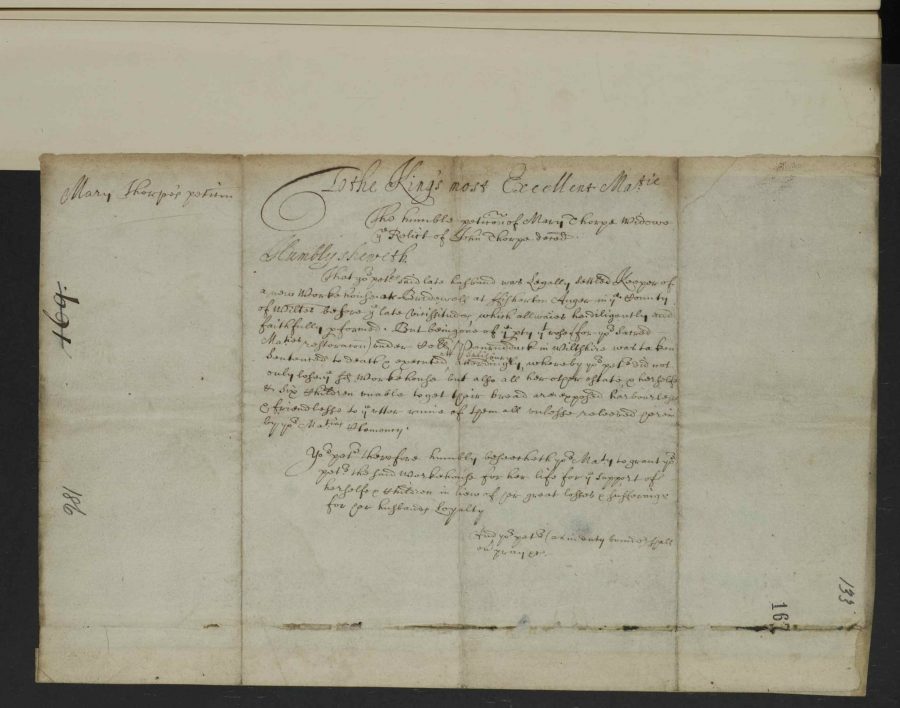 Mary Thorpes peticion
To the Kings most Excellent Ma:tie
The humble peticon of Mary Thorpe Widowe
ye Relict of John Thorpe deced.
Humbly sheweth
That yor petrs said late husband was Legally setled Keeper of
a new Workehouse at Bridewell at Fisherton Anger in ye County
of Wiltes before ye late vicissitudes which allwaies he diligently and
faithfully pformed. But being one of ye pty yt rose for yor sacred
Maties restoracon under Coll: Penruddock in Wiltshire was taken
Sentenced to death & executed accordingly, whereby yor petr did not
only lose ye sd Workehouse but also all her other estate, & herselfe
& Six Children unable to get their bread are exposed harbourles
& friendlesse to ye utter ruine of them all unlesse releeved herein
by yor Maties Clemency.
Yor petr therefore humbly beseecheth yor Maty to grant yor
petr the said Workehouse for her life for ye support of
herselfe & Children in liew of her great losses & sufferings
for her husbands Loyalty
And yor petr (as in duty bound) shall
ever pray &c.
169.
186
133
167